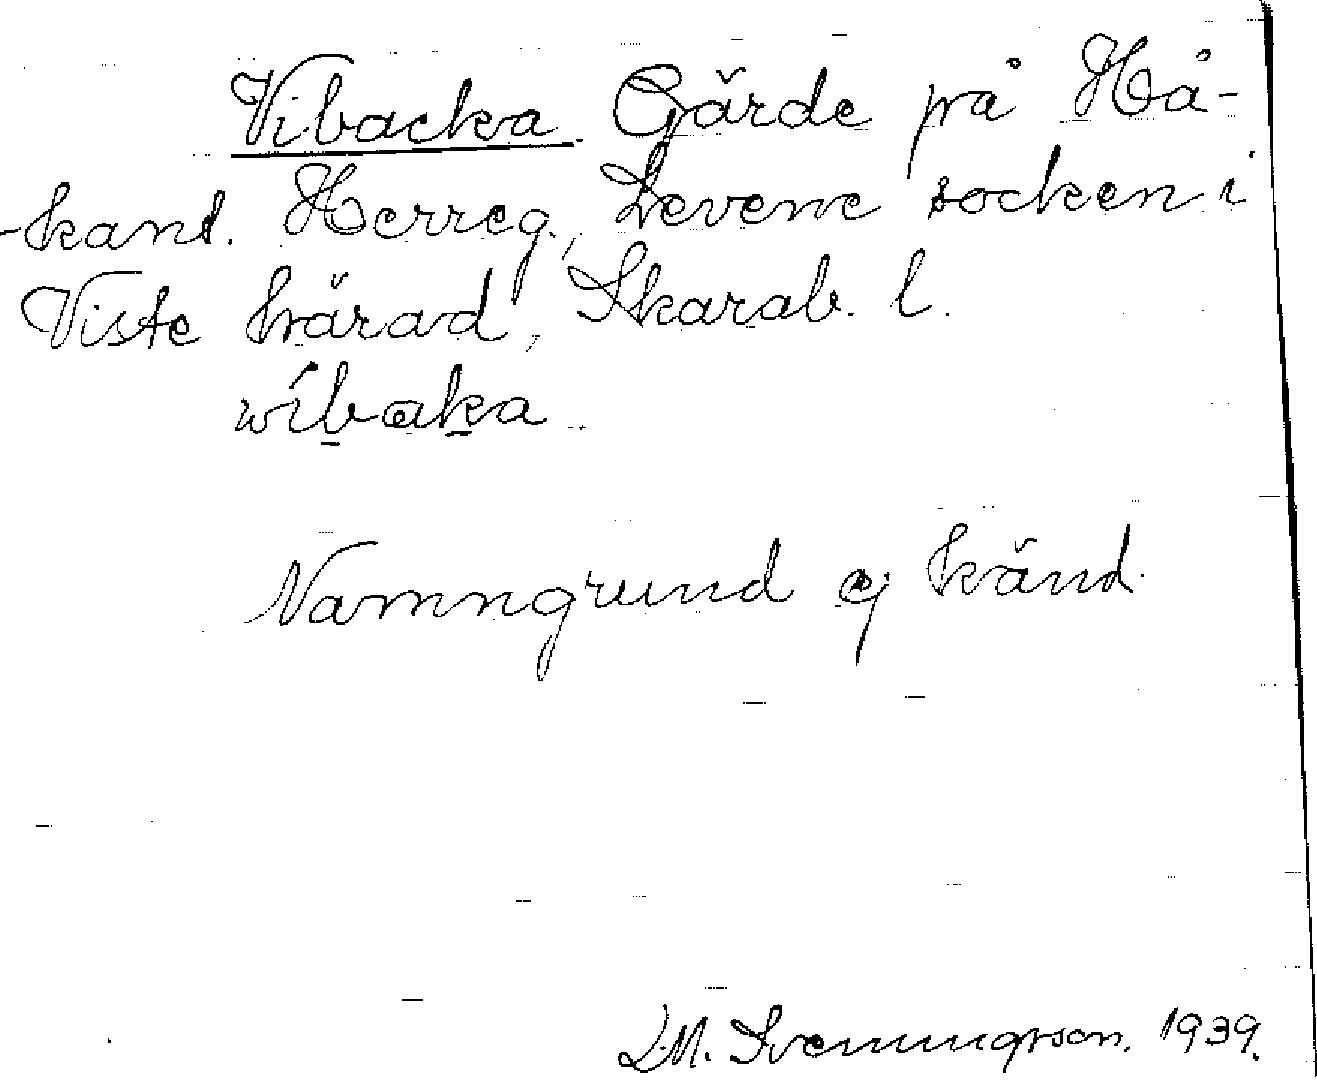 Vibacka. Gärde på Hå-
-kans. Herreg., Levene socken i
Viste härad, Skarab. l.
wíbaka
Namngrund ej känd.
L.M. Svenungsson. 1939.